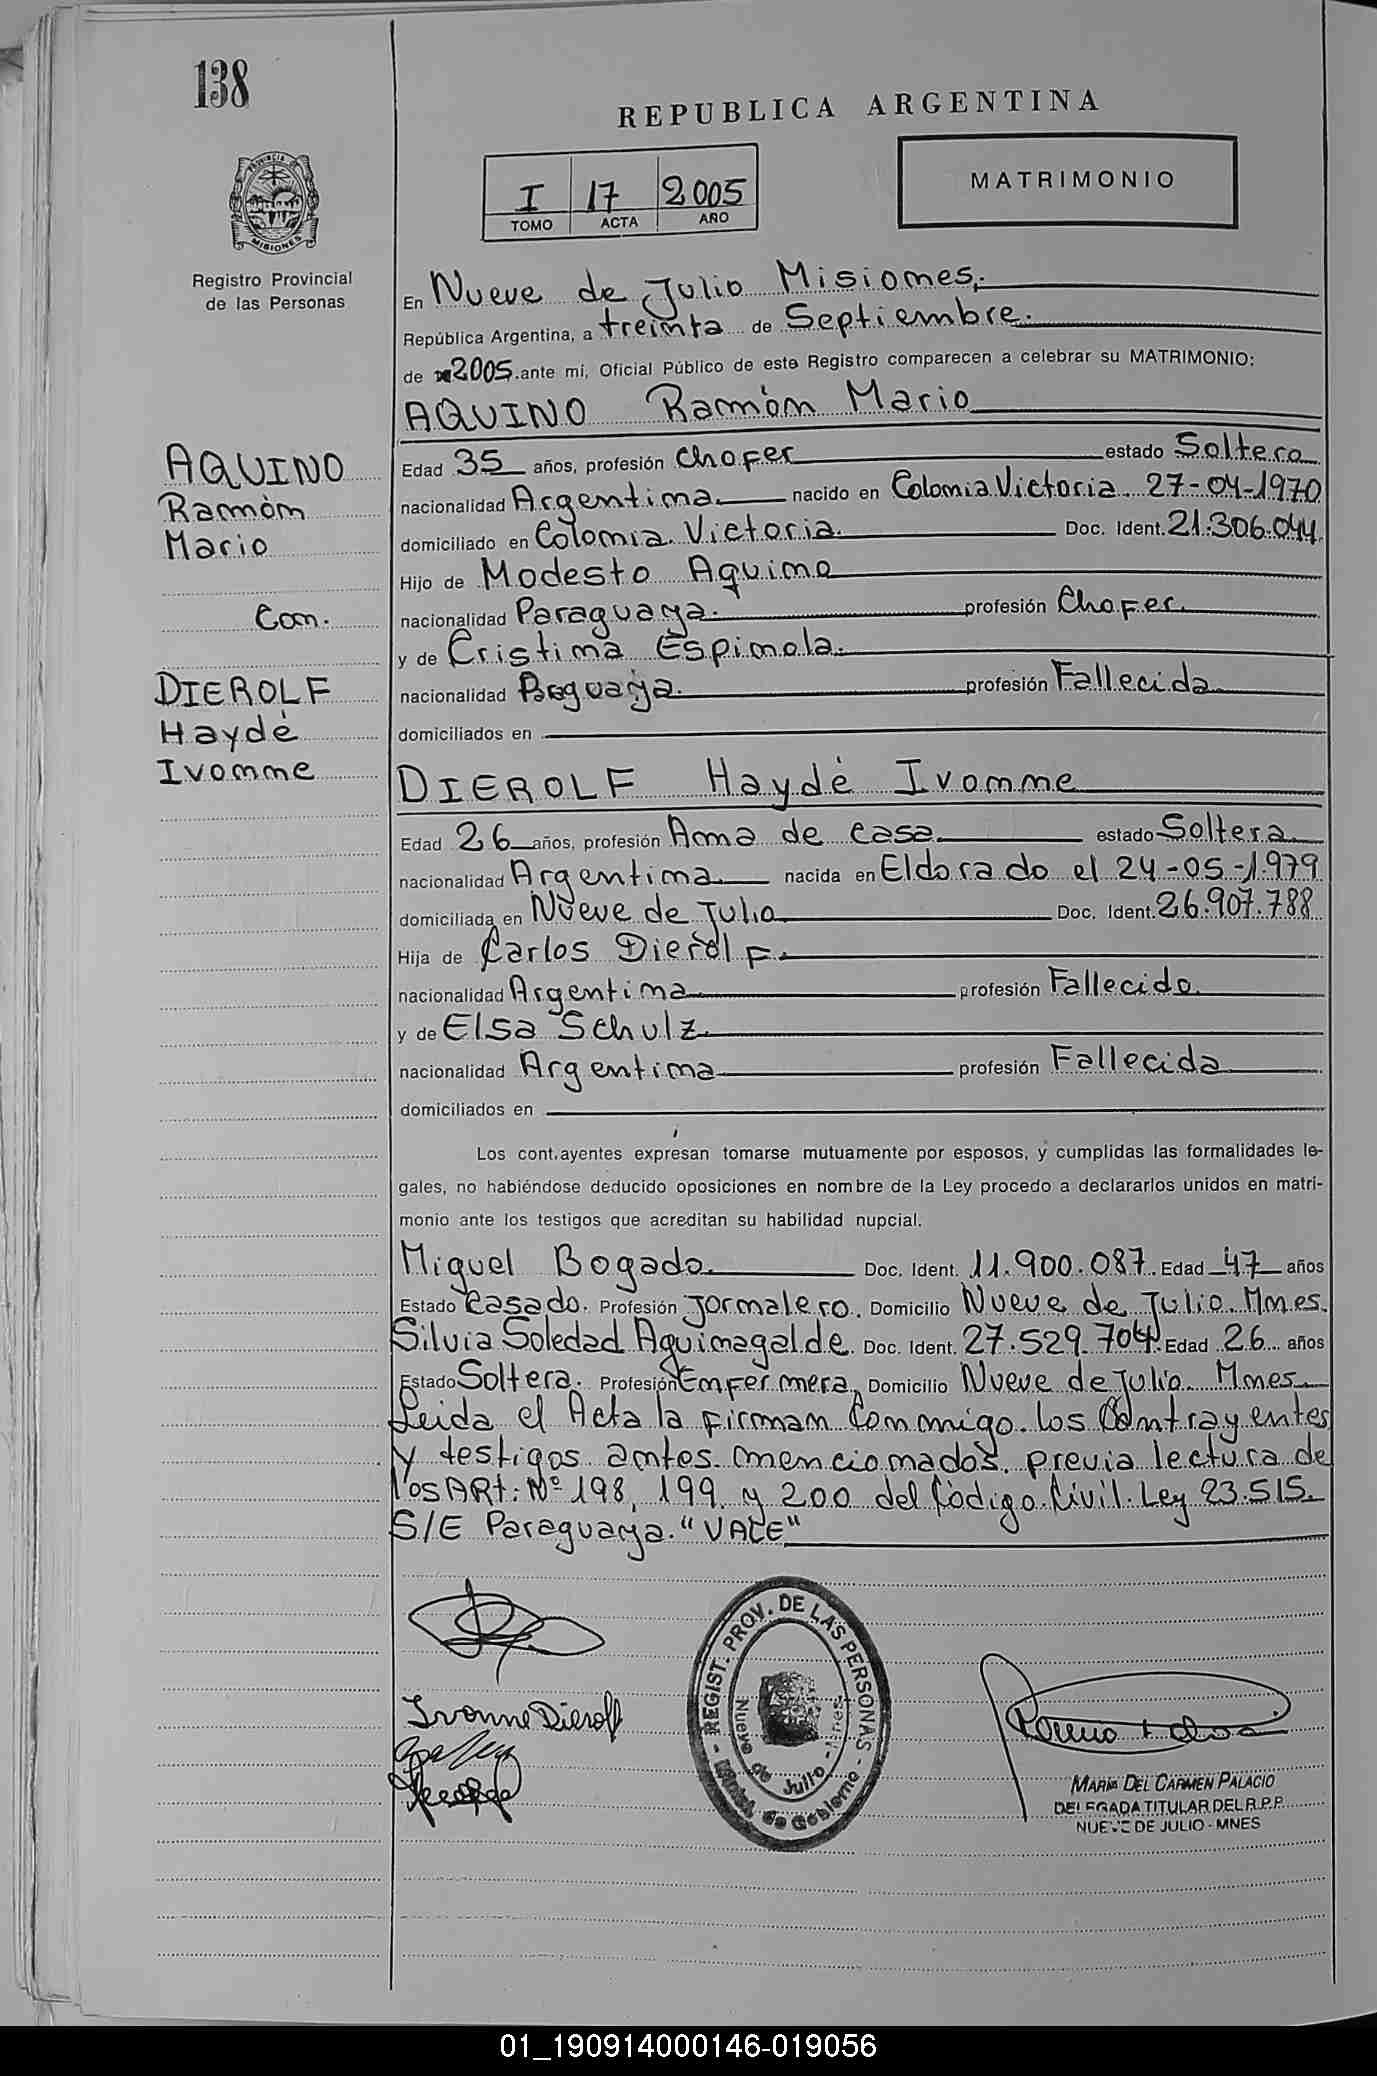 138
REPUBLICA ARGENTINA
I 17 2005
TOMO ACTA AÑO
MATRIMONIO
PROVINCIA DE MISIONES
Registro Provincial
de las Personas
En Nueve de Julio Misiones.
República Argentina, a treinta de Septiembre.
de 2005 ante mi, Oficial Público de este Registro comparecen a celebrar su MATRIMONIO:
AQUINO Ramón Mario
Edad 35 años, profesión Chofer estado Soltero
nacionalidad Argentina nacido en Colonia Victoria 27-04-1970
domiciliado en Colonia Victoria Doc. Ident. 21.306.044
Hijo de Modesto Aquino
nacionalidad Paraguaya. profesión Chofer.
y de Cristina Espinola.
nacionalidad Paraguaya. profesión Fallecida
domiciliados en
AQUINO
Ramón
Mario
Con.
DIEROLF
Haydé
Ivonne
DIEROLF Haydé Ivonne
Edad 26 años, profesión Ama de casa estado Soltera
nacionalidad Argentina nacida en Eldorado el 24-05-1.979
domiciliada en Nueve de Julio Doc. Ident. 26.907.788
Hija de Carlos Dierolf.
nacionalidad Argentina profesión Fallecido
y de Elsa Schulz
nacionalidad Argentina profesión Fallecida
domiciliados en
Los cont.ayentes expresan tomarse mutuamente por esposos, y cumplidas las formalidades le-
gales, no habiéndose deducido oposiciones en nombre de la Ley procedo a declararlos unidos en matri-
monio ante los testigos que acreditan su habilidad nupcial.
Miguel Bogado Doc. Ident. 11.900.087 Edad 47 años
Estado Casado. Profesión Jornalero. Domicilio Nueve de Julio. Mnes.
Silvia Soledad Aquinagalde. Doc. Ident. 27.529.704 Edad 26 años
Estado Soltera. Profesión Enfermera Domicilio Nueve de Julio. Mnes.
Leida el Acta la firman Conmigo los Contrayentes
y testigos antes mencionados, previa lectura de
los ARt: Nº 198, 199 y 200 del Código Civil. Ley 23.515.
S/E Paraguaya. "VALE"
Ivonne Dierolf
REGIST. PROV. DE LAS PERSONAS - de Gobierno -
Nueve de Julio - Mnes.
MARIA DEL CARMEN PALACIO
DELEGADA TITULAR DEL R.P.P.
NUEVE DE JULIO - MNES
01_190914000146-019056